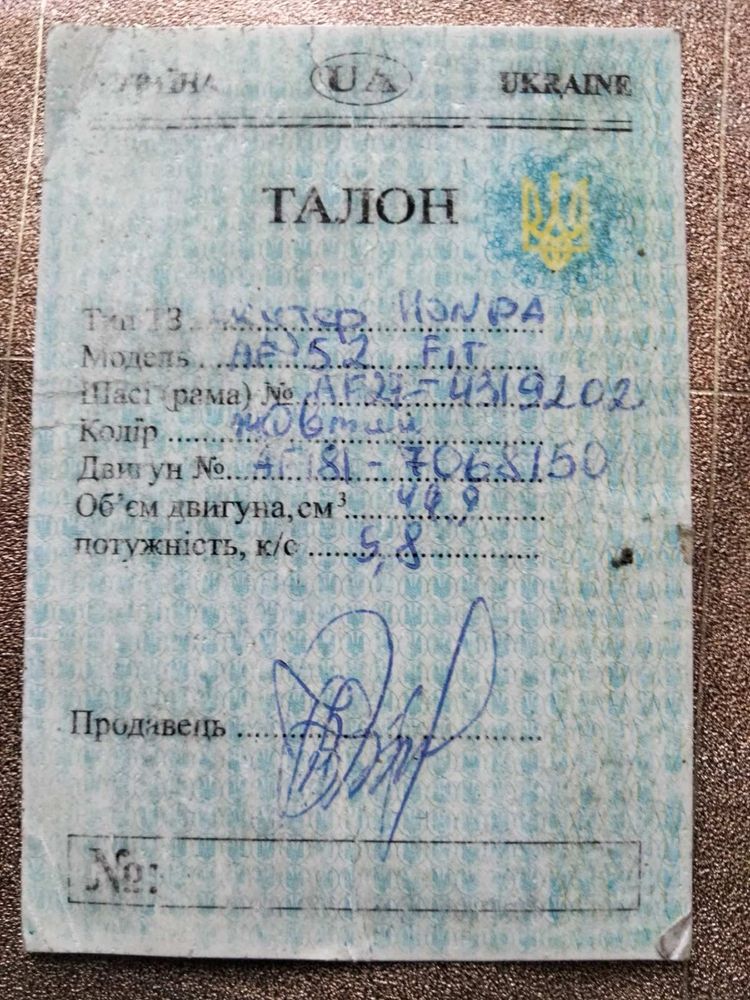 УКРАЇНА UA UKRAINE
ТАЛОН
Тип ТЗ скутер HONDA
Модель AF 52 FIT
Шасі (рама) № AF27-4319202
Колір жовтий
Двигун № AF18I-7068150
Об'єм двигуна, см³ 49,9
потужність, к/с 5,8
Продавець
№: